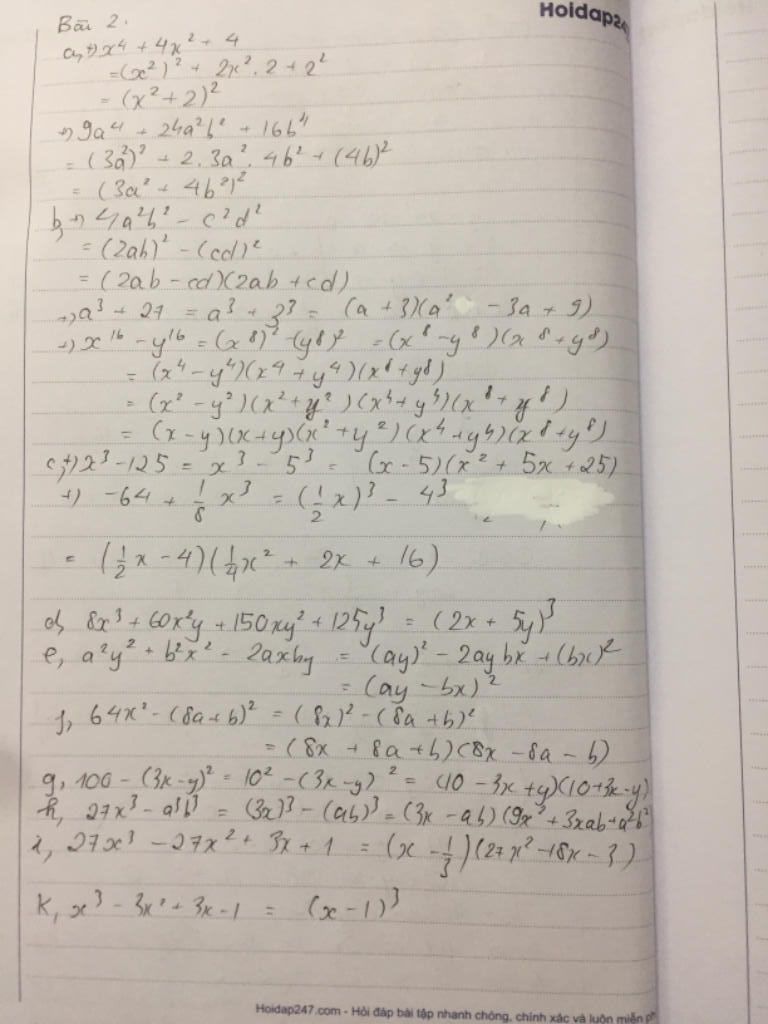 Hoidap247
Bài 2.
a, +) x⁴ + 4x² + 4
= (x²)² + 2x².2 + 2²
= (x² + 2)²
+) 9a⁴ + 24a²b² + 16b⁴
= (3a²)² + 2.3a².4b² + (4b)²
= (3a² + 4b²)²
b, +) 4a²b² - c²d²
= (2ab)² - (cd)²
= (2ab - cd)(2ab + cd)
+) a³ + 27 = a³ + 3³ = (a + 3)(a² - 3a + 9)
+) x¹⁶ - y¹⁶ = (x⁸)² - (y⁸)² = (x⁸ - y⁸)(x⁸ + y⁸)
= (x⁴ - y⁴)(x⁴ + y⁴)(x⁸ + y⁸)
= (x² - y²)(x² + y²)(x⁴ + y⁴)(x⁸ + y⁸)
= (x - y)(x + y)(x² + y²)(x⁴ + y⁴)(x⁸ + y⁸)
c, +) x³ - 125 = x³ - 5³ = (x - 5)(x² + 5x + 25)
+) -64 + 1/8 x³ = (1/2 x)³ - 4³
= (1/2 x - 4)(1/4 x² + 2x + 16)
d, 8x³ + 60x²y + 150xy² + 125y³ = (2x + 5y)³
e, a²y² + b²x² - 2axby = (ay)² - 2aybx + (bx)²
= (ay - bx)²
f, 64x² - (8a + b)² = (8x)² - (8a + b)²
= (8x + 8a + b)(8x - 8a - b)
g, 100 - (3x - y)² = 10² - (3x - y)² = (10 - 3x + y)(10 + 3x - y)
h, 27x³ - a³b³ = (3x)³ - (ab)³ = (3x - ab)(9x² + 3xab + a²b²)
i, 27x³ - 27x² + 3x + 1 = (x - 1/3)(27x² - 18x - 3)
k, x³ - 3x² + 3x - 1 = (x - 1)³
Hoidap247.com - Hỏi đáp bài tập nhanh chóng, chính xác và luôn miễn ph